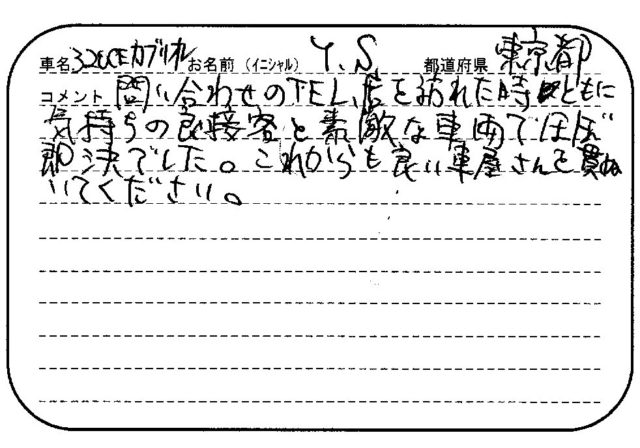 車名 320CEカブリオレ お名前（イニシャル） Y.S 都道府県 東京都
コメント 問い合わせのTEL、店を訪れた時ともに
気持ちの良接客と素敵な車両でほぼ
即決でした。これからも良い車屋さんを貫ぬ
いてください。